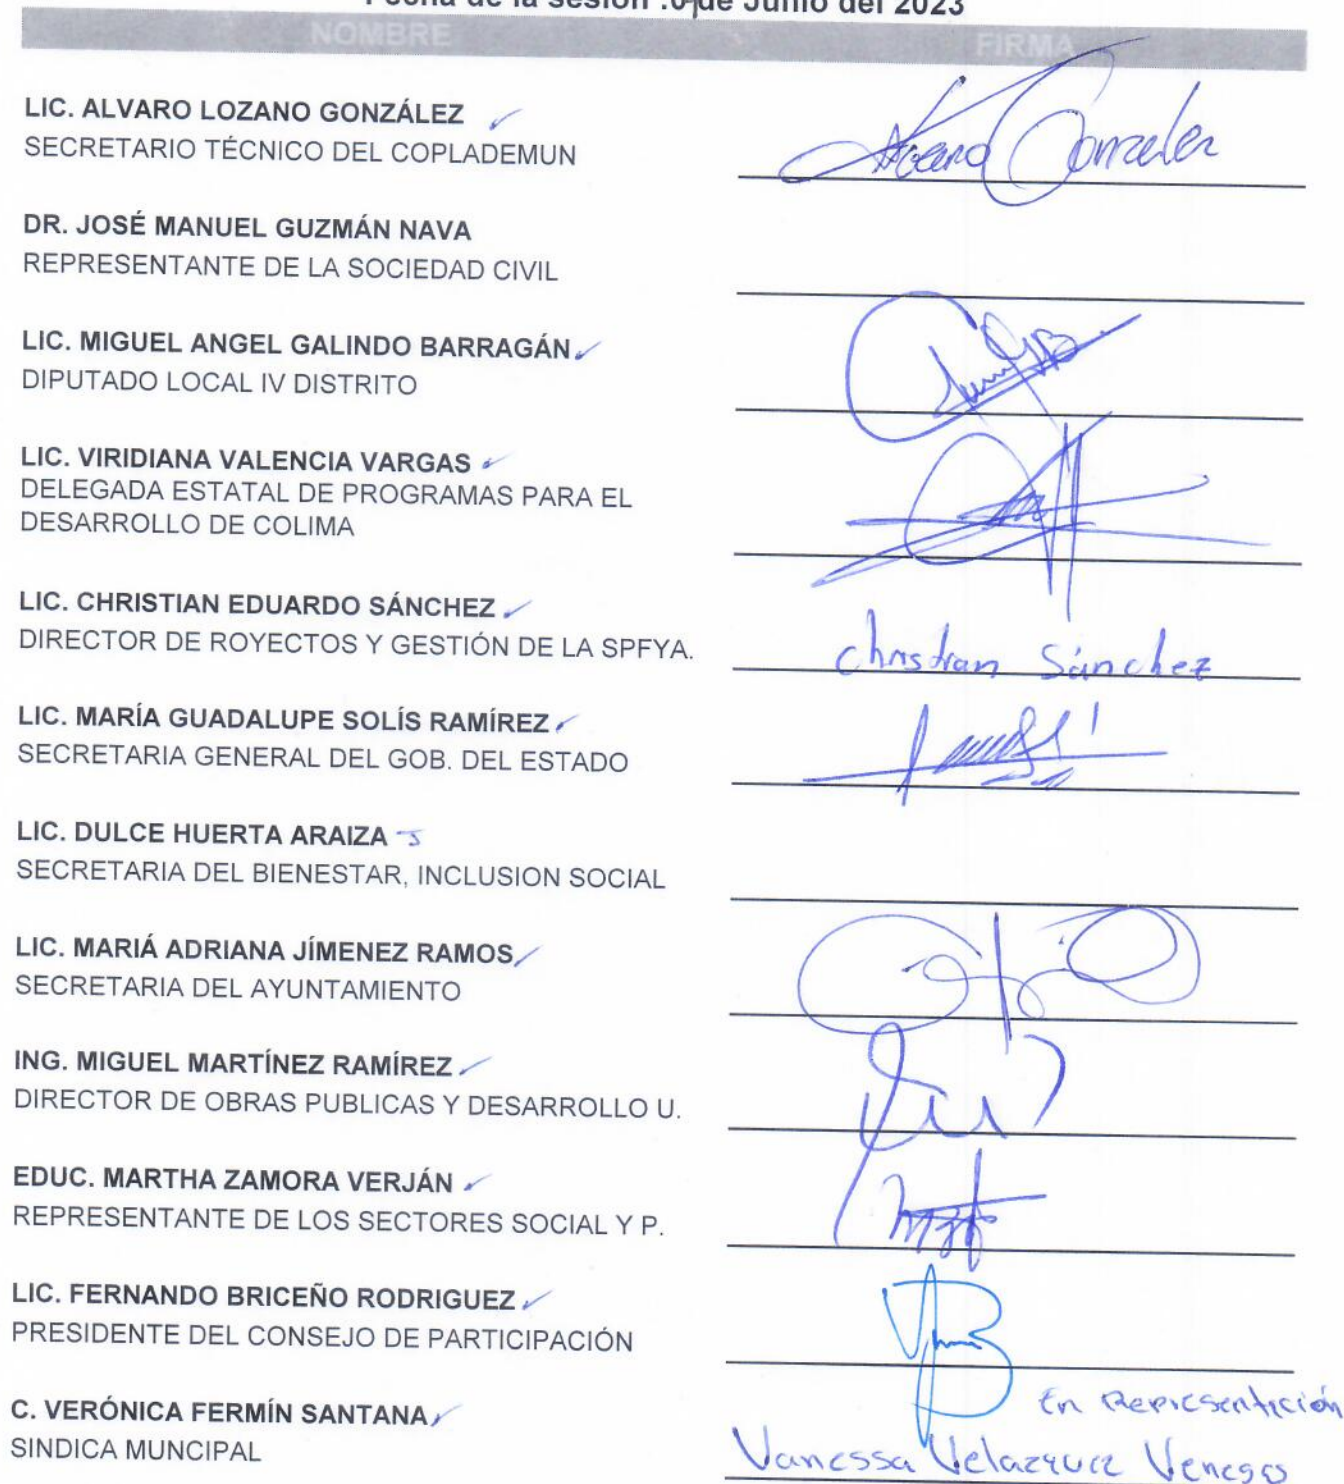 Fecha de la sesión :0 de Junio del 2023
NOMBRE FIRMA
LIC. ALVARO LOZANO GONZÁLEZ
SECRETARIO TÉCNICO DEL COPLADEMUN
Gonzalez
DR. JOSÉ MANUEL GUZMÁN NAVA
REPRESENTANTE DE LA SOCIEDAD CIVIL
LIC. MIGUEL ANGEL GALINDO BARRAGÁN
DIPUTADO LOCAL IV DISTRITO
LIC. VIRIDIANA VALENCIA VARGAS
DELEGADA ESTATAL DE PROGRAMAS PARA EL
DESARROLLO DE COLIMA
LIC. CHRISTIAN EDUARDO SÁNCHEZ
DIRECTOR DE ROYECTOS Y GESTIÓN DE LA SPFYA.
Christian Sánchez
LIC. MARÍA GUADALUPE SOLÍS RAMÍREZ
SECRETARIA GENERAL DEL GOB. DEL ESTADO
LIC. DULCE HUERTA ARAIZA
SECRETARIA DEL BIENESTAR, INCLUSION SOCIAL
LIC. MARIÁ ADRIANA JÍMENEZ RAMOS
SECRETARIA DEL AYUNTAMIENTO
ING. MIGUEL MARTÍNEZ RAMÍREZ
DIRECTOR DE OBRAS PUBLICAS Y DESARROLLO U.
EDUC. MARTHA ZAMORA VERJÁN
REPRESENTANTE DE LOS SECTORES SOCIAL Y P.
LIC. FERNANDO BRICEÑO RODRIGUEZ
PRESIDENTE DEL CONSEJO DE PARTICIPACIÓN
En Representación
C. VERÓNICA FERMÍN SANTANA
SINDICA MUNCIPAL
Vanessa Velazquez Venegas